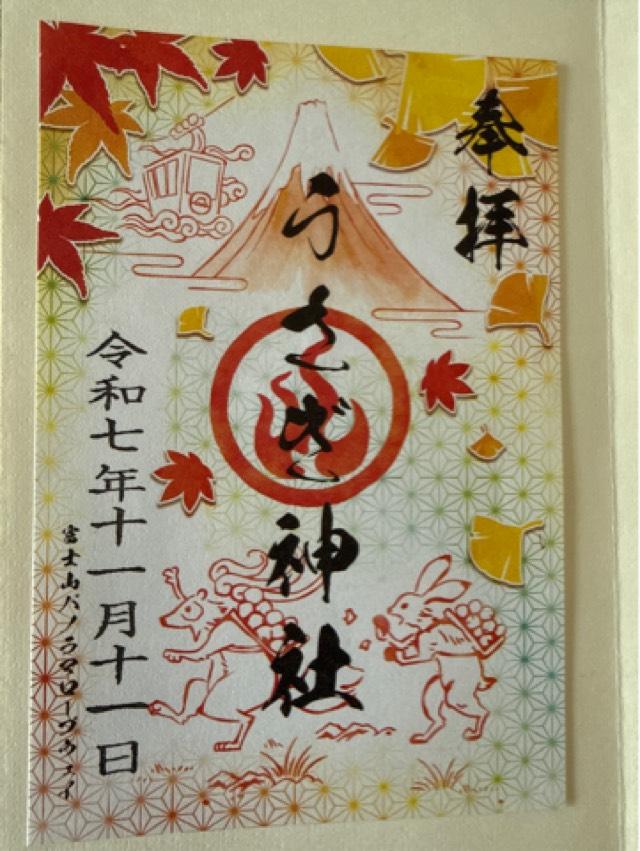 奉拝
うさぎ神社
令和七年十一月十一日
富士山パノラマロープウェイ